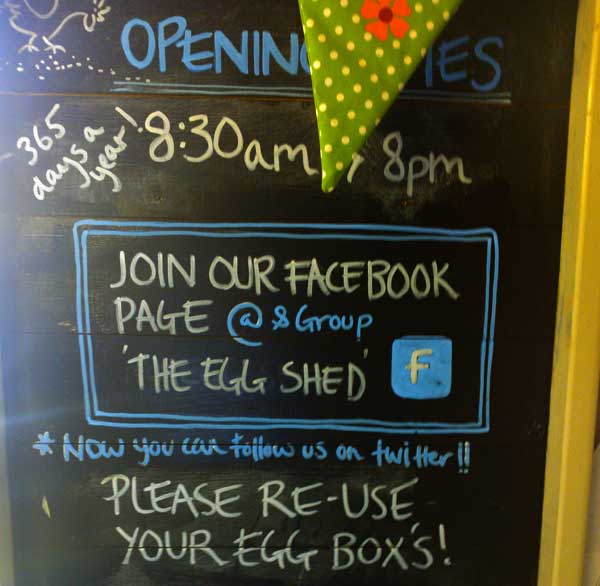 OPENING
365
days a
year!
8:30am
8pm
JOIN OUR FACEBOOK
PAGE @ & Group
'THE EGG SHED'
f
* NOW you can follow us on twitter!!
PLEASE RE-USE
YOUR EGG BOX'S!